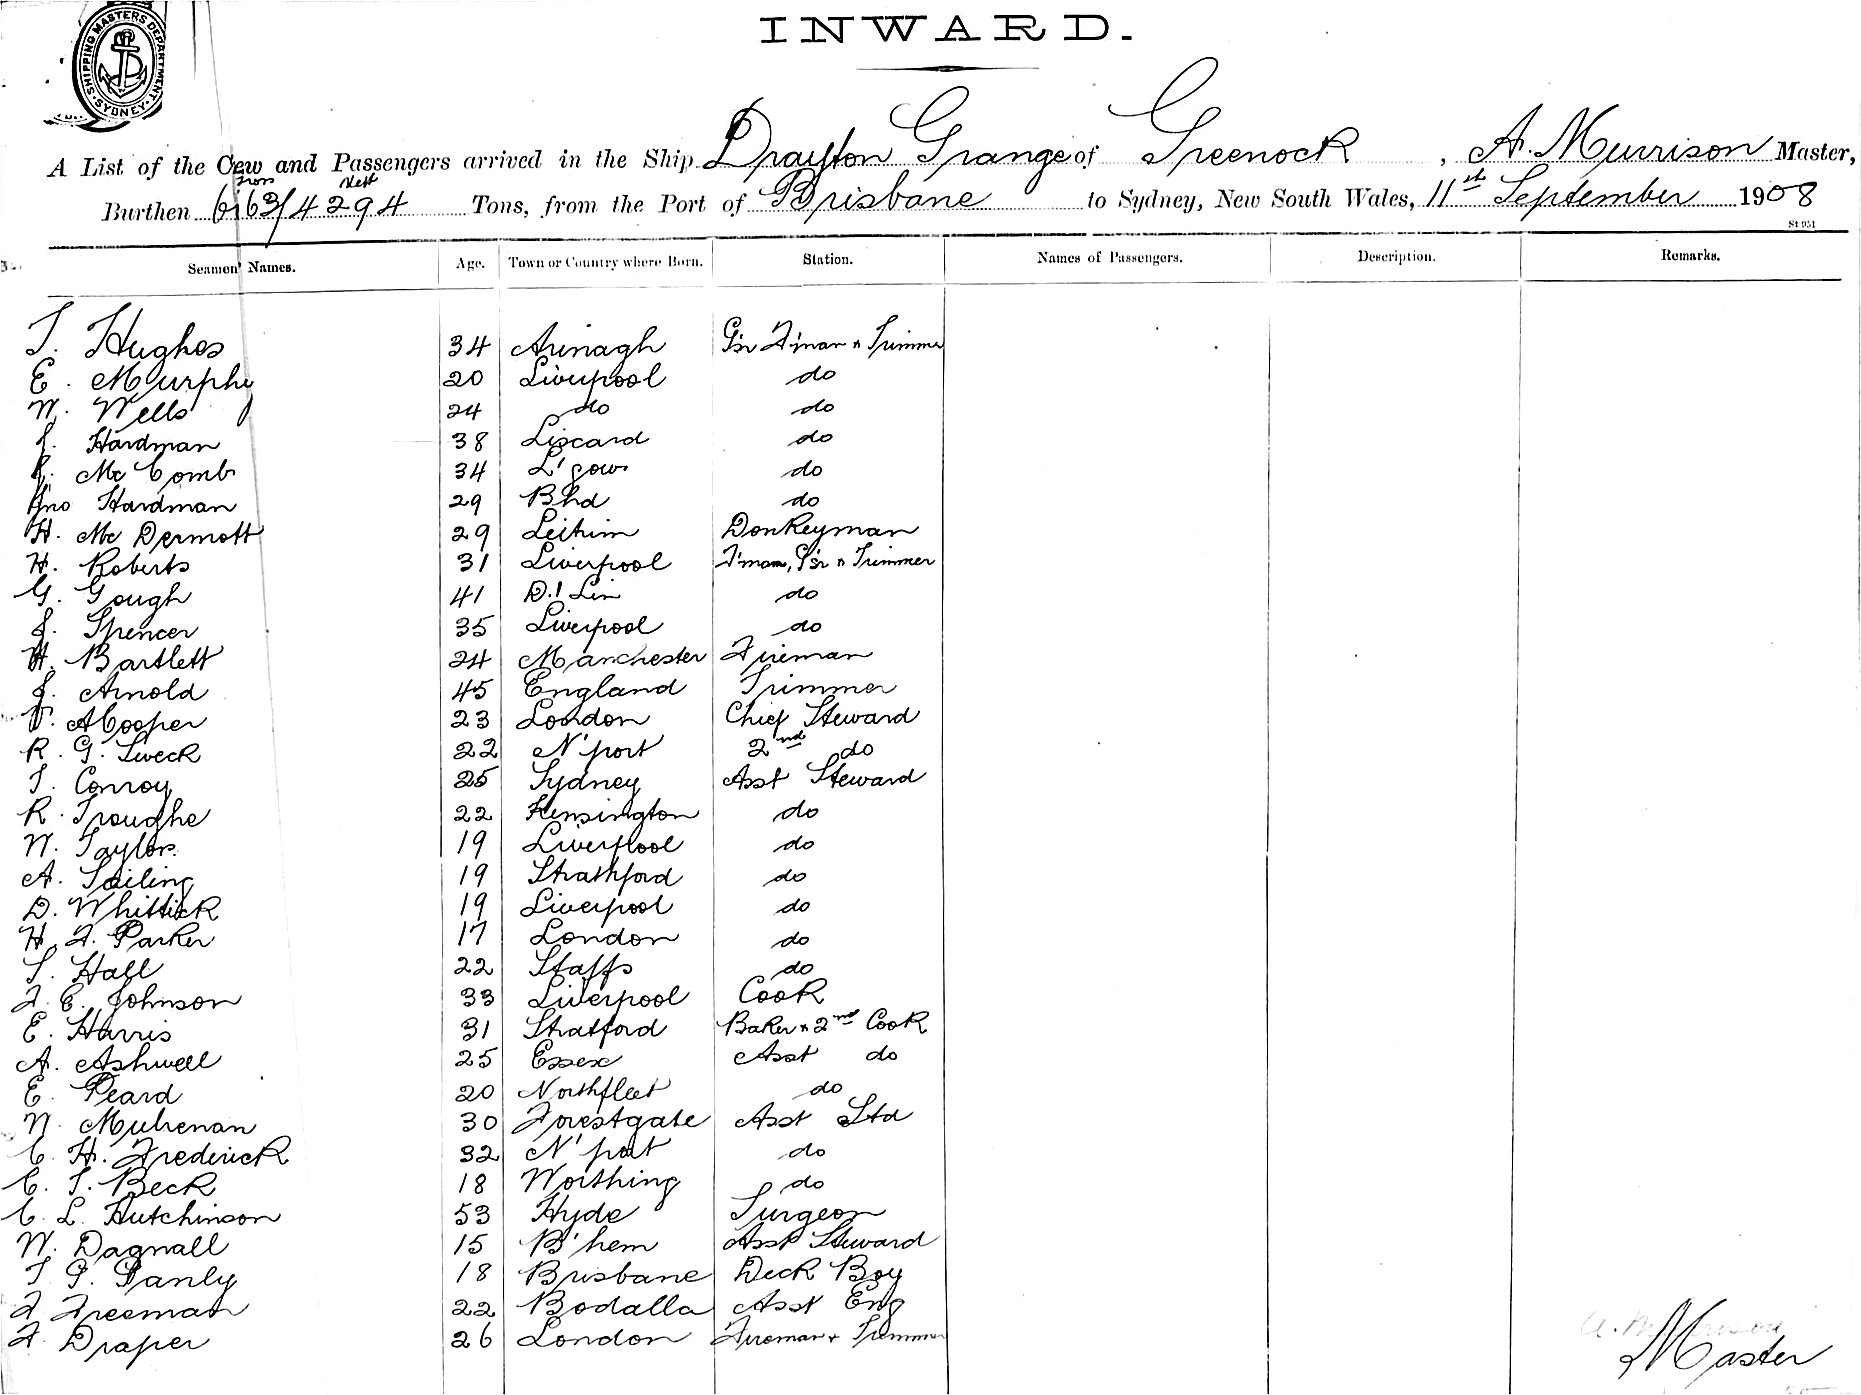 SHIPPING MASTERS DEPARTMENT
SYDNEY
INWARD.
A List of the Crew and Passengers arrived in the Ship Drayton Grange of Greenock, A. Murrison Master,
Gross Nett
Burthen 6163/4294 Tons, from the Port of Brisbane to Sydney, New South Wales, 11th September 1908
St 951
Seamen' Names. Age. Town or Country where Born. Station. Names of Passengers. Description. Remarks.
T. Hughes 34 Armagh F'man & Trimmer
E. Murphy 20 Liverpool do
W. Wells 24 do do
J. Hardman 38 Liscard do
Mc Comb 34 L'gow do
Jno Hardman 29 Bhd do
H. Mc Dermott 29 Leitrim Donkeyman
H. Roberts 31 Liverpool F'man, G'sr & Trimmer
G. Gough 41 do
J. Spencer 35 Liverpool do
H. Bartlett 24 Manchester Fireman
J. Arnold 45 England Trimmer
A Cooper 23 London Chief Steward
R. G. Sweck 22 N'port 2nd do
T. Conroy 25 Sydney Asst Steward
R. Troughe 22 Kensington do
W. Taylor 19 Liverpool do
A. Sailing 19 Strathford do
D. Whittick 19 Liverpool do
H. F. Parker 17 London do
T. Hall 22 Staffs do
F. E. Johnson 33 Liverpool Cook
E. Harris 31 Stratford Baker & 2nd Cook
A. Ashwell 25 Essex Asst do
E. Peard 20 Northfleet do
30 Forestgate Asst Std
C. H. Frederick 32 N'port do
C. T. Beck 18 Worthing do
C. L. Hutchinson 53 Hyde Surgeon
W. Dagnall 15 B'hem Asst Steward
T. P. Panly 18 Brisbane Deck Boy
F Freeman 22 Bodalla Asst Eng
F. Draper 26 London Fireman & Trimmer
Master